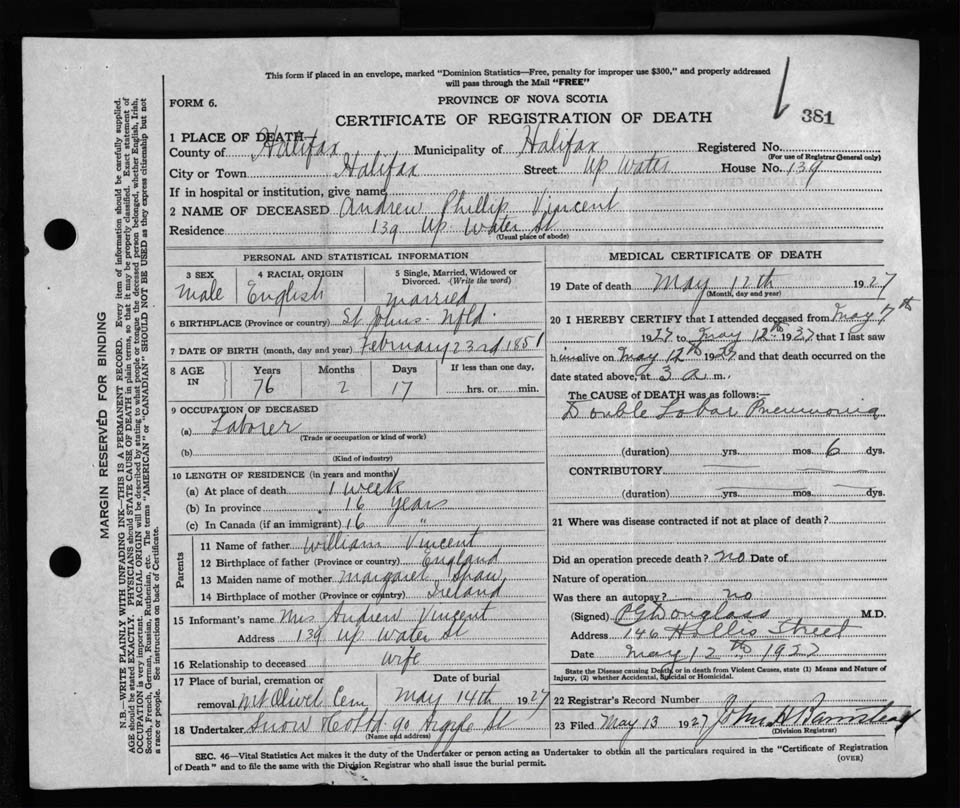 This form if placed in an envelope, marked "Dominion Statistics—Free, penalty for improper use $300," and properly addressed
will pass through the Mail "FREE"
FORM 6.
PROVINCE OF NOVA SCOTIA
CERTIFICATE OF REGISTRATION OF DEATH
381
1 PLACE OF DEATH—
County of Halifax Municipality of Halifax Registered No.
(For use of Registrar General only)
City or Town Halifax Street Up Water House No. 139
If in hospital or institution, give name
2 NAME OF DECEASED Andrew Phillip Vincent
Residence 139 Up. Water St
(Usual place of abode)
PERSONAL AND STATISTICAL INFORMATION
3 SEX 4 RACIAL ORIGIN 5 Single, Married, Widowed or Divorced. (Write the word)
Male English Married
6 BIRTHPLACE (Province or country) St. Johns - Nfld.
7 DATE OF BIRTH (month, day and year) February 23rd 1851
8 AGE IN Years Months Days If less than one day,
76 2 17 hrs. or min.
9 OCCUPATION OF DECEASED
(a) Laborer
(Trade or occupation or kind of work)
(b)
(Kind of industry)
10 LENGTH OF RESIDENCE (in years and months)
(a) At place of death 1 week
(b) In province 16 years
(c) In Canada (if an immigrant) 16 "
Parents
11 Name of father William Vincent
12 Birthplace of father (Province or country) England
13 Maiden name of mother Margaret Shaw
14 Birthplace of mother (Province or country) Ireland
15 Informant's name Mrs Andrew Vincent
Address 139 Up Water St
16 Relationship to deceased Wife
17 Place of burial, cremation or Date of burial
removal Mt Olivet Cem May 14th 1927
18 Undertaker Snow & Co Ltd 90 Argyle St
(Name and address)
MEDICAL CERTIFICATE OF DEATH
19 Date of death May 12th 1927
(Month, day and year)
20 I HEREBY CERTIFY that I attended deceased from May 7th
1927 to May 12th 1927 that I last saw
him alive on May 12th 1927 and that death occurred on
date stated above, at 3 a m.
The CAUSE of DEATH was as follows:—
Double Lobar Pneumonia
(duration) yrs. mos. 6 dys.
CONTRIBUTORY
(duration) yrs. mos. dys.
21 Where was disease contracted if not at place of death?
Did an operation precede death? no Date of
Nature of operation
Was there an autopsy? no
(Signed) Douglass M.D.
Address 146 Hollis Street
Date May 12th 1927
State the Disease causing Death, or in death from Violent Causes, state (1) Means and Nature of
Injury, (2) whether Accidental, Suicidal or Homicidal.
22 Registrar's Record Number
23 Filed May 13 1927 John H Barnstead
(Division Registrar)
SEC. 46—Vital Statistics Act makes it the duty of the Undertaker or person acting as Undertaker to obtain all the particulars required in the "Certificate of Registration
of Death" and to file the same with the Division Registrar who shall issue the burial permit.
(OVER)
MARGIN RESERVED FOR BINDING
N.B.—WRITE PLAINLY WITH UNFADING INK—THIS IS A PERMANENT RECORD. Every item of information should be carefully supplied.
AGE should be stated EXACTLY. PHYSICIANS should STATE CAUSE OF DEATH in plain terms, so that it may be properly classified. Exact statement of
OCCUPATION is very important. RACIAL ORIGIN will be described by stating to what people or tongue the deceased person belonged, whether English, Irish,
Scotch, French, German, Russian, Ruthenian, etc. The terms "AMERICAN" or "CANADIAN" SHOULD NOT BE USED as they express citizenship but not
a race or people. See instructions on back of Certificate.